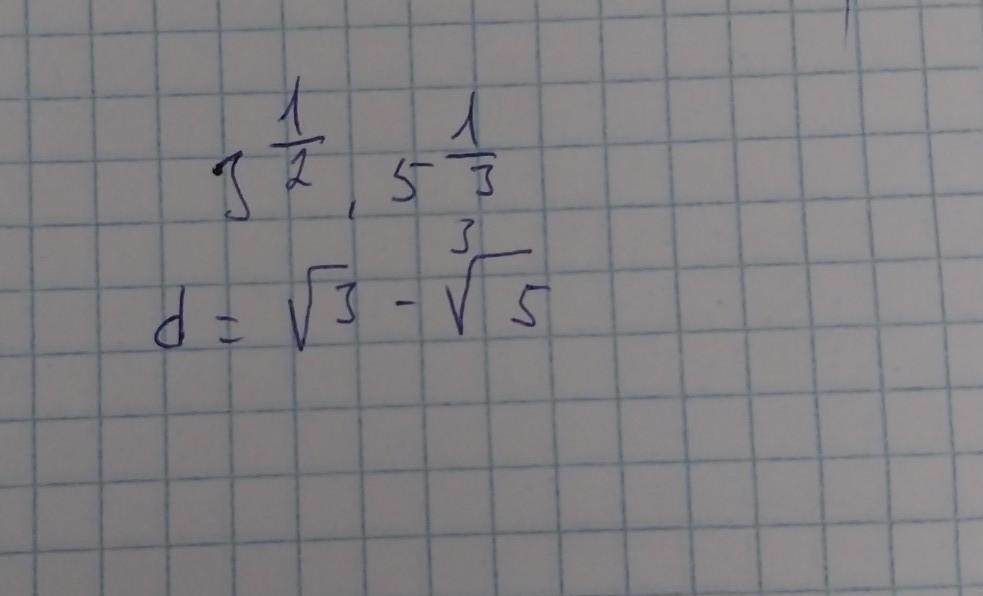 3^{\frac{1}{2}}, 5^{\frac{1}{3}}
d = \sqrt{3} - \sqrt[3]{5}